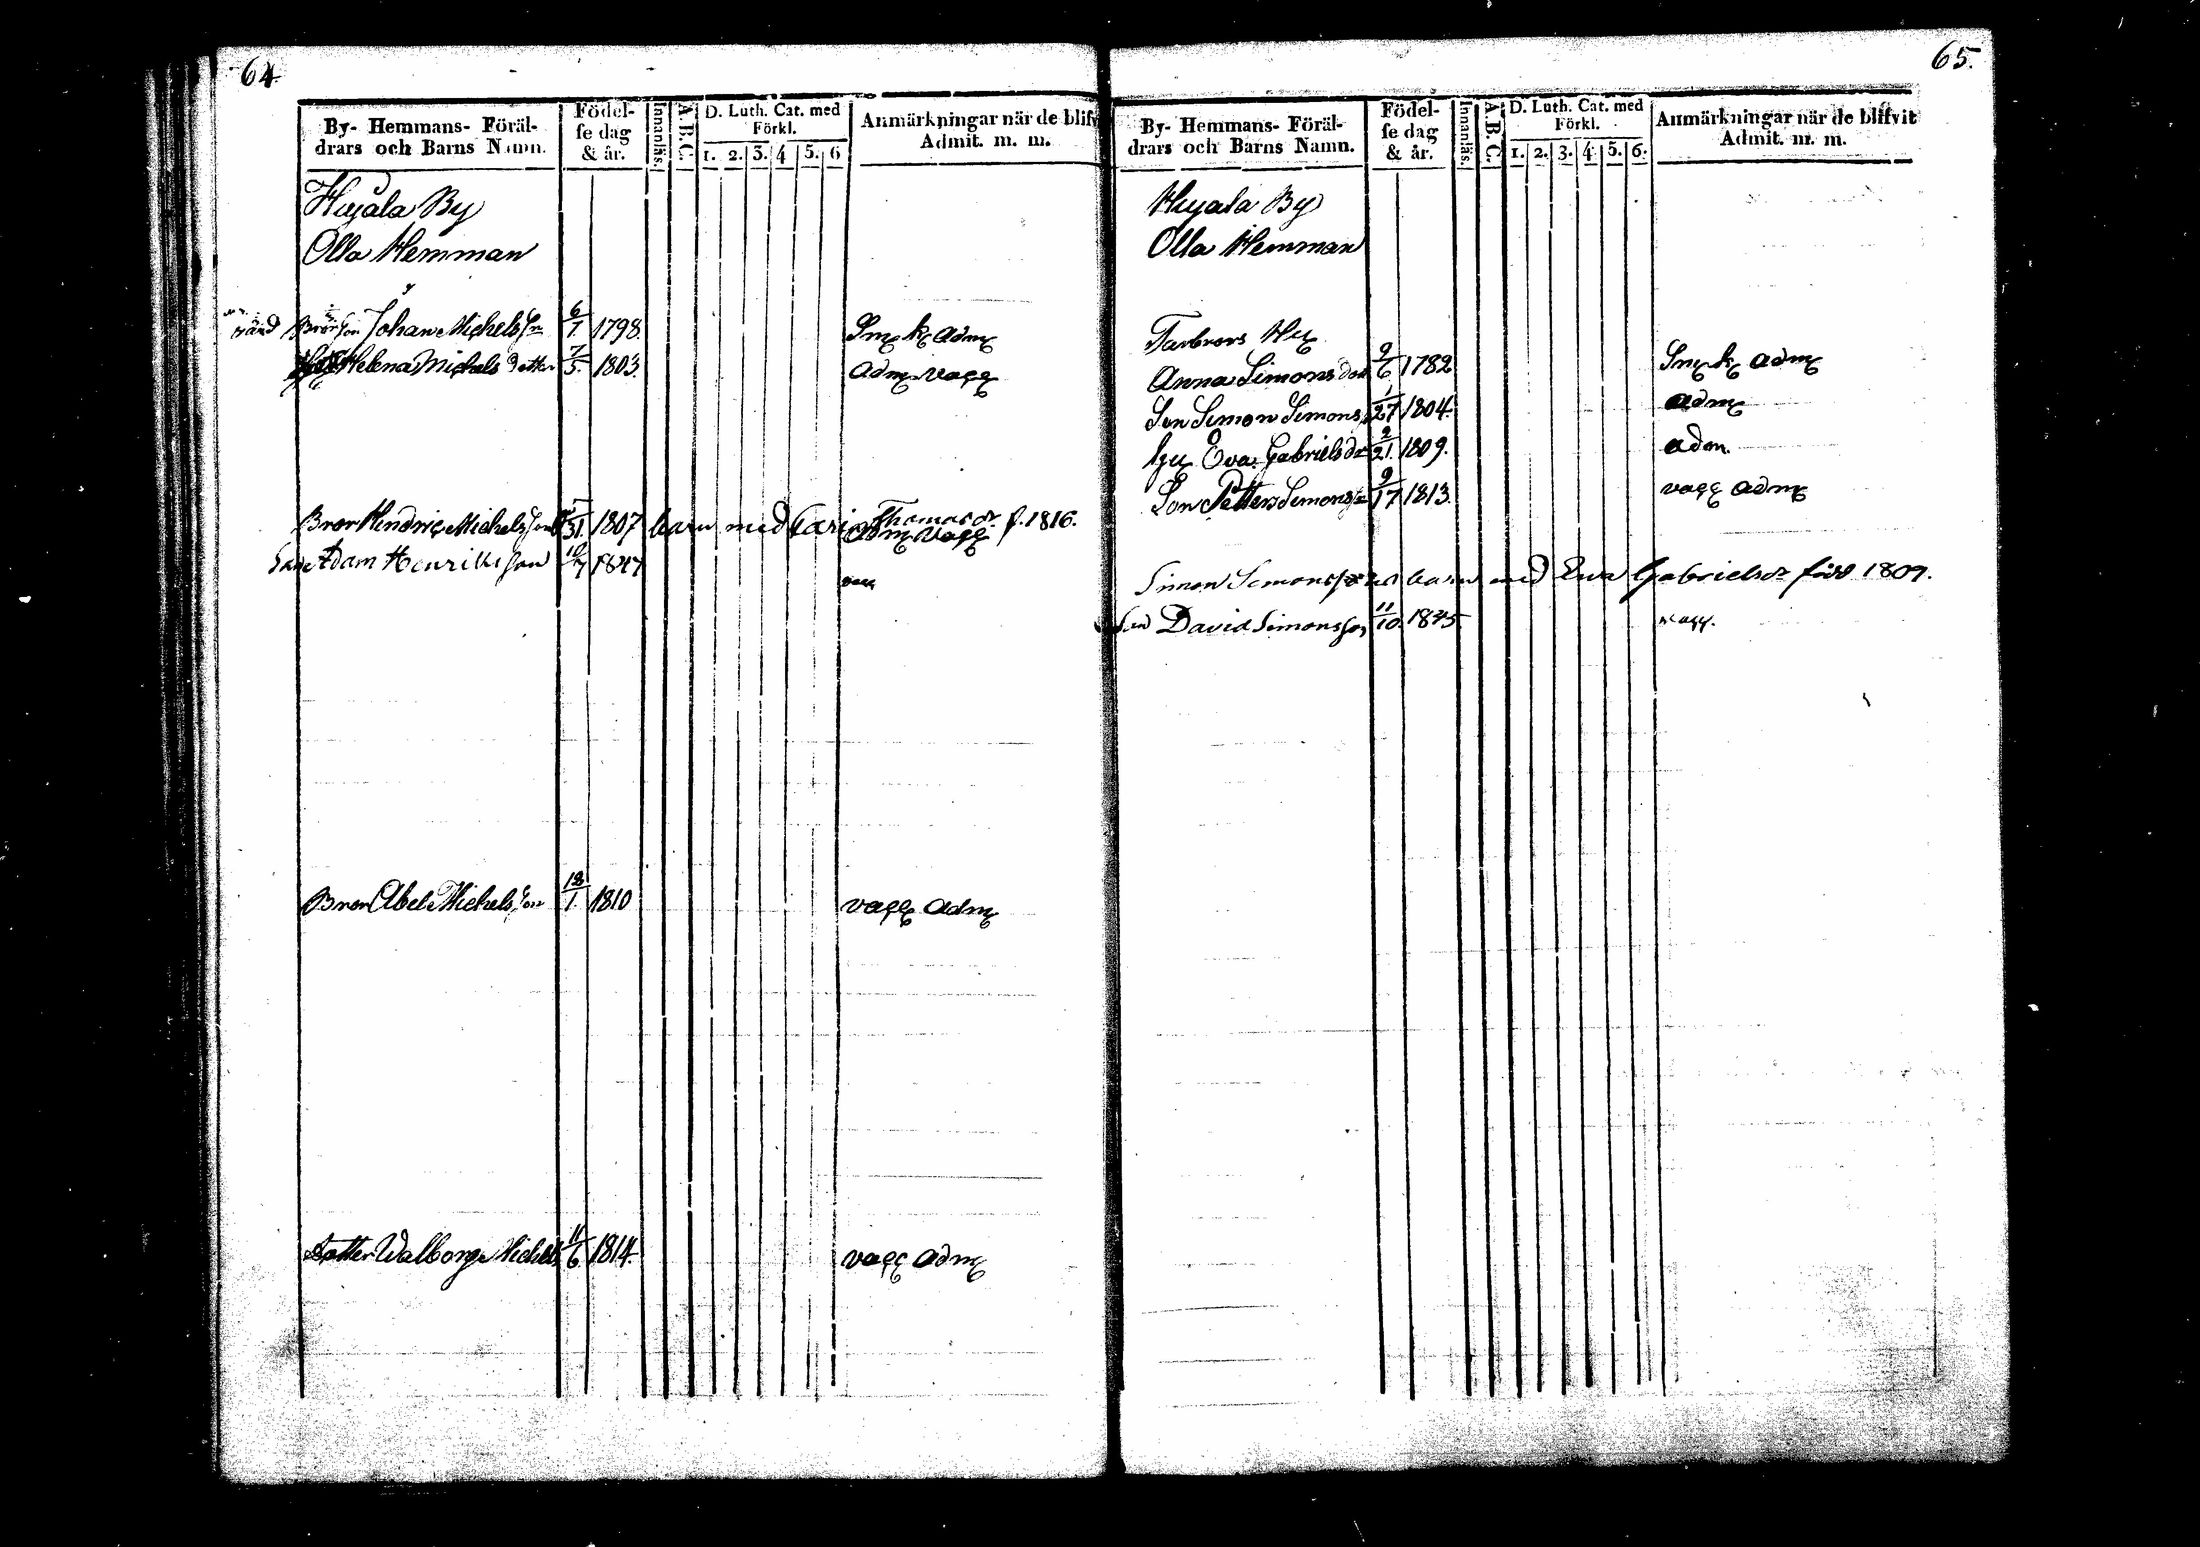 64.
By- Hemmans- Föräl-
drars och Barns Namn.
Födel-
se dag
& år.
Innanläs.
A.B.C.
D. Luth. Cat. med
Förkl.
1. 2. 3. 4 5. 6
Anmärkningar när de blifv
Admit. m. m.
Hujala By
Olla Hemman
Brorson Johan Michelsson 6/7 1798. Sm k adm
Helena Michels dotter 7/5. 1803. adm vacc
Bror Hendric Michelsson /31. 1807 barn med Carin Thomasdr f. 1816.
adm vacc
Son Adam Henriksson 10/7 1847 vacc
Bror Abel Michelsson 12/1. 1810 vacc adm
Dotter Walborg Michels 11/6 1814. vacc adm
65.
By- Hemmans- Föräl-
drars och Barns Namn.
Födel-
se dag
& år.
Innanläs.
A.B.C.
D. Luth. Cat. med
Förkl.
1. 2. 3. 4 5. 6.
Anmärkningar när de blifvit
Admit. m. m.
Hujala By
Olla Hemman
Farbrors Hu
Anna Simons dott 9/6 1782 Sm k adm
Son Simon Simons 1/27 1804. adm
hu Eva Gabrielsdr 2/21. 1809. adm.
Son Petter Simonss 9/17 1813. vacc adm
Simon Simonssons barn med Eva Gabrielsdr född 1809.
Son David Simonsson 11/10. 1845 vacc.